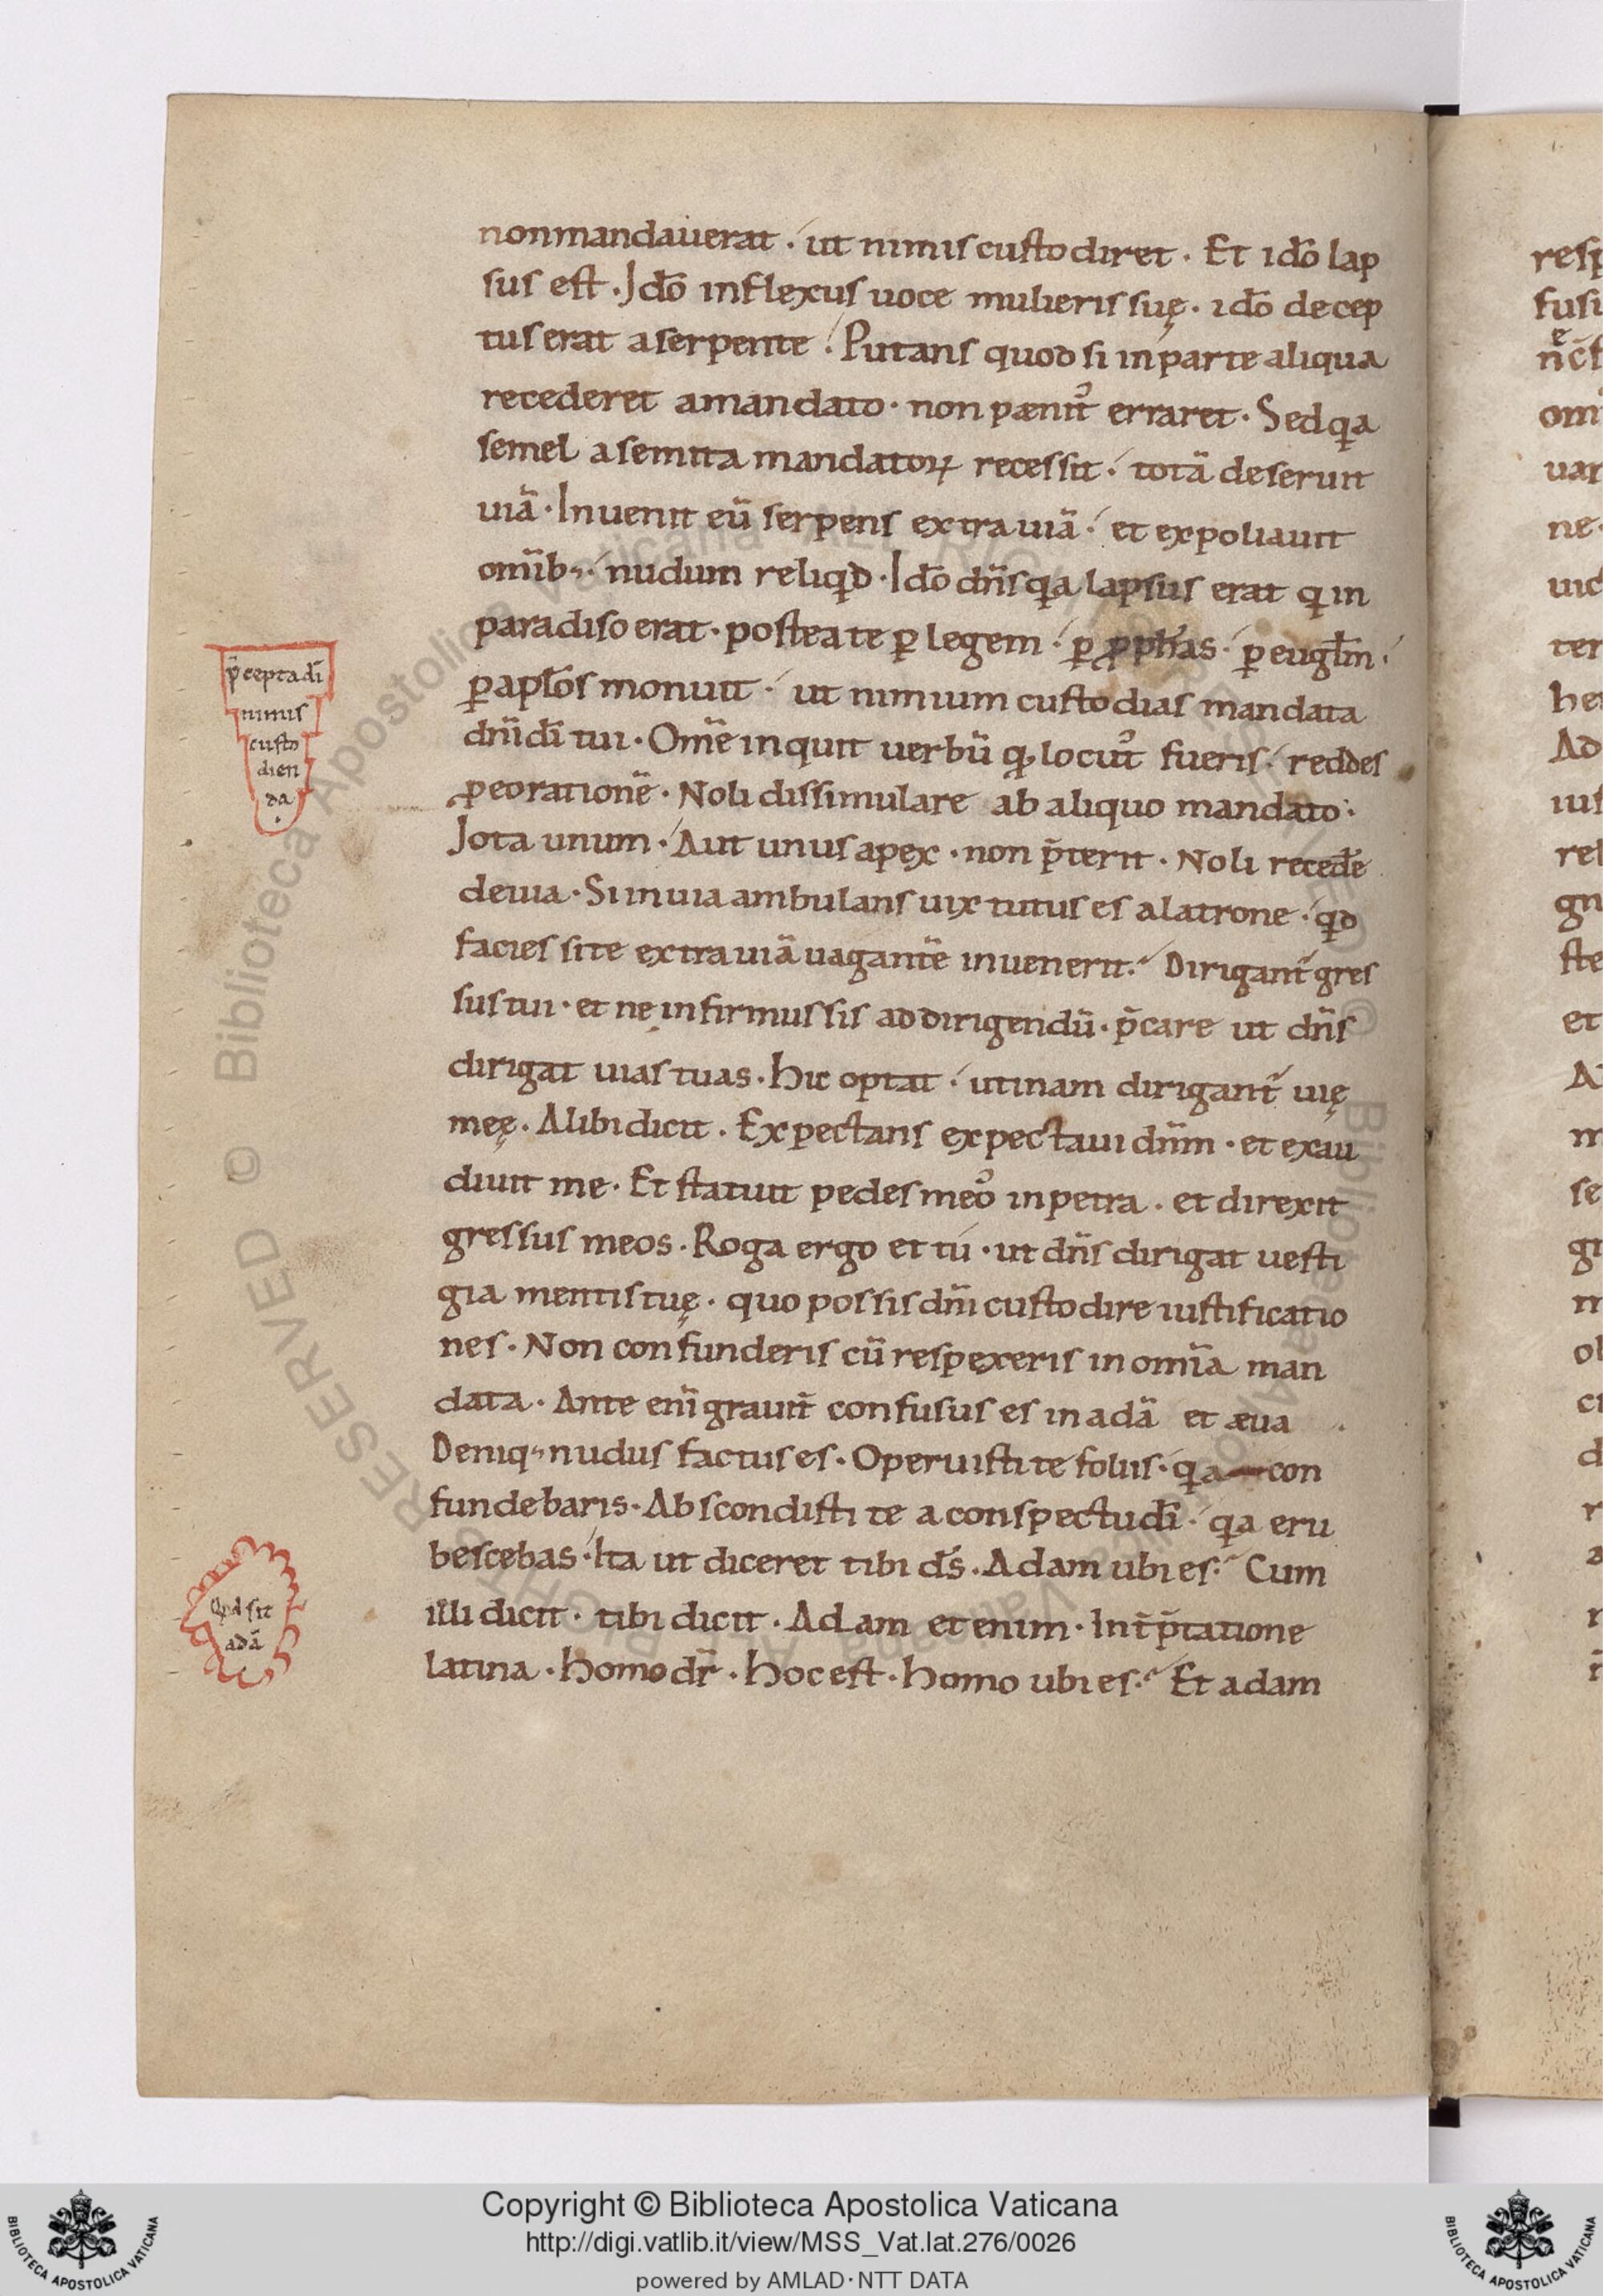 nonmandauerat · ut nimis custodiret · Et idō lap
sus est · Idō inflexus uoce mulieris suę · idō decep
tus erat aserpente · Putans quod si inparte aliqua
recederet amandato · non pænit᷒ erraret · Sed qa
semel asemita mandatoꝝ recessit · totā deseruit
uiā · Inuenit eū serpens extrauiā · et expoliauit
omīb; · nudum reliqd · Idō dn̄s qa lapsus erat qi in
paradiso erat · postea te ꝑ legem · ꝑ ꝓph̄as · ꝑ eugl̄m ·
ꝑ apl̄os monuit · ut nimium custodias mandata
dn̄i dī tui · Om̄e inquit uerbū qđ locut᷒ fueris · reddes
ꝓ eo rationē · Noli dissimulare ab aliquo mandato ·
Iota unum · Aut unus apex · non p̄terit · Noli reced̄e
deuia · Si inuia ambulans uix tutus es alatrone · qd
facies site extrauiā uagantē inuenerit · Dirigant̄ gres
sus tui · et ne infirmus sis addirigendū · p̄care ut dn̄s
dirigat uias tuas · hic optat · utinam dirigant̄ uię
meę · Alibi dicit · Expectans expectaui dn̄m · et exau
diuit me · Et statuit pedes meo᷒ inpetra · et direxit
gressus meos · Roga ergo et tú · ut dn̄s dirigat uesti
gia mentis tuę · quo possis dn̄i custodire iustificatio
nes · Non confunderis cū respexeris in om̄ia man
data · Ante enī grauit̄ confusus es in adā et æua
Deniq; nudus factus es · Operuisti te foliis · qa con
fundebaris · Abscondisti te aconspectu dī · qa eru
bescebas · Ita ut diceret tibi d̄s · Adam ubi es · Cum
illi dicit · tibi dicit · Adam etenim · Int̄p̄tatione
latina · homo dr̄ · hoc est · homo ubi es · Et adam
p̄cepta dī
nimis
custo
dien
da
Qd sit
adā
resp
fusi
e
nc̄f
om
uar
ne ·
uic
ter
her
Ad
ius
rel
gn
ste
et
A
m
se
gr
m
ol
ci
d
r
a
r
Copyright © Biblioteca Apostolica Vaticana
http://digi.vatlib.it/view/MSS_Vat.lat.276/0026
powered by AMLAD·NTT DATA
BIBLIOTECA APOSTOLICA VATICANA
BIBLIOTECA APOSTOLICA VATICANA